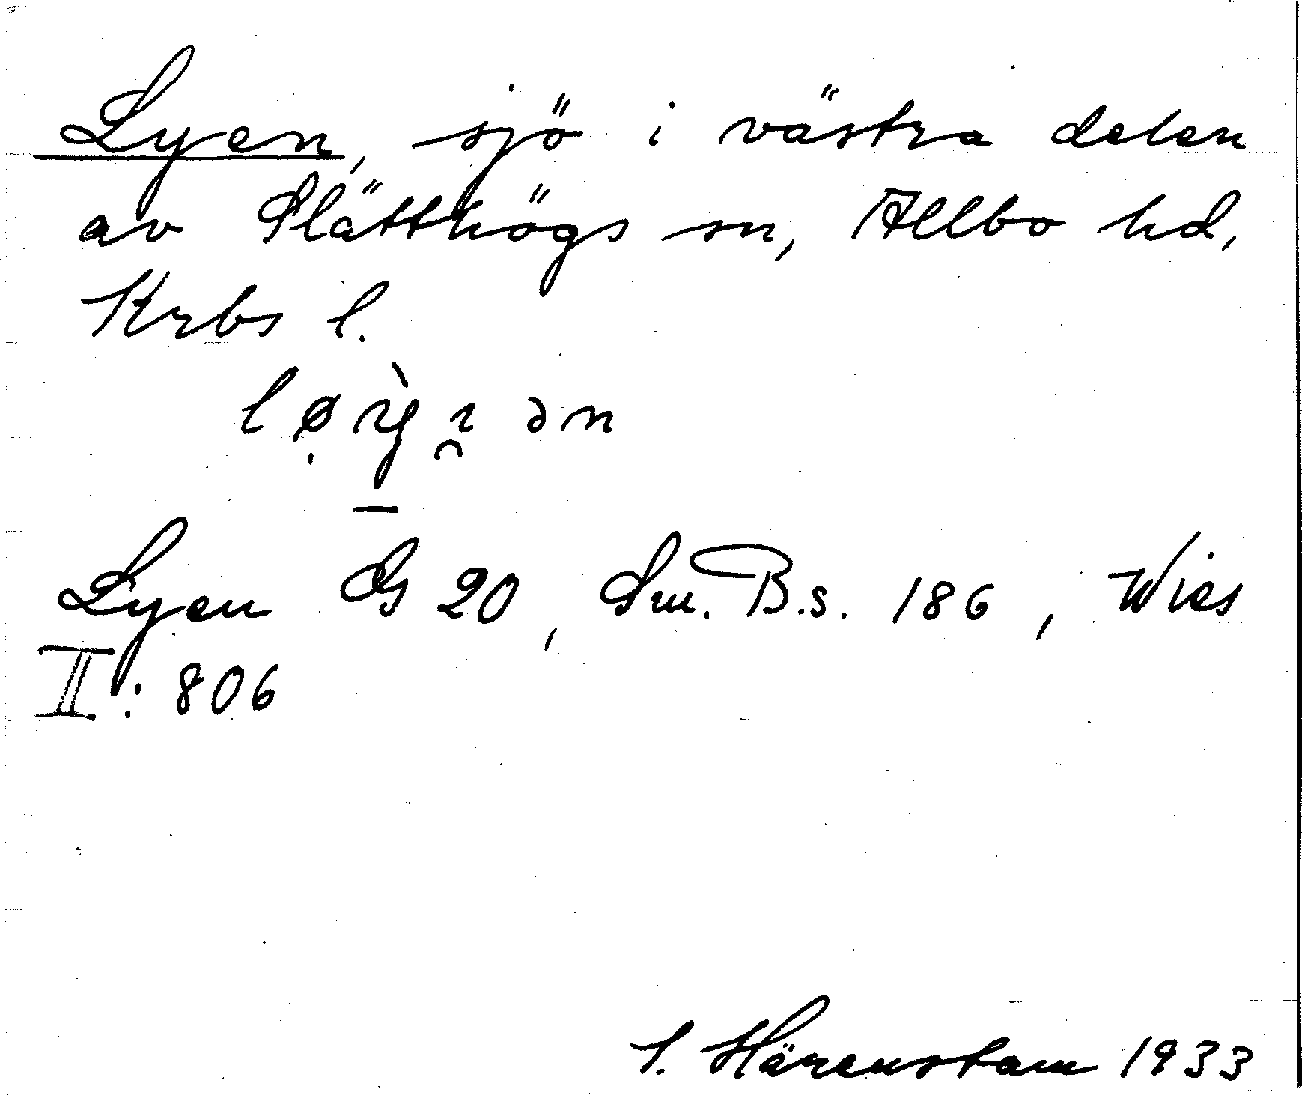 Lyen, sjö i västra delen
av Slätthögs sn, Allbo hd,
Krbs l.
Lyen GS 20, Sm. B.s. 186, Wies
II: 806
S. Härenstam 1933